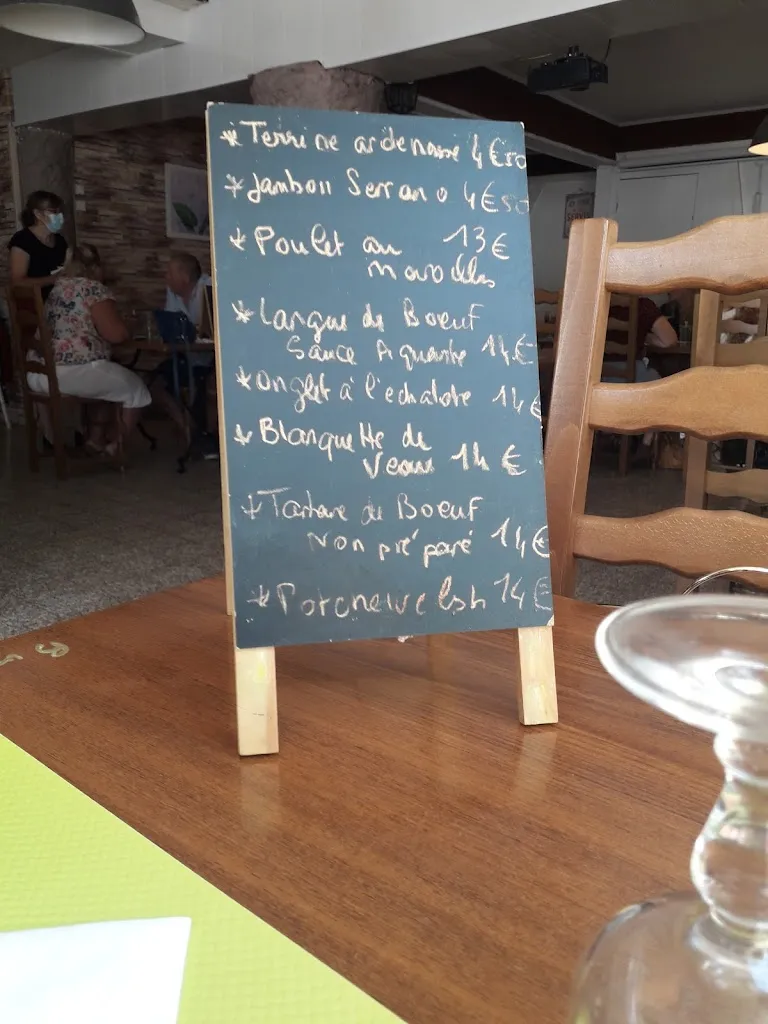 * Terrine ardenaise 4€50
* Jambon Serrano 4€50
* Poulet au 13€
maroilles
* Langue de Boeuf
Sauce Piquante 14€
* onglet à l'echalote 14€
* Blanquette de
Veau 14€
* Tartare de Boeuf
Non préparé 14€
* Potchevlesh 14€